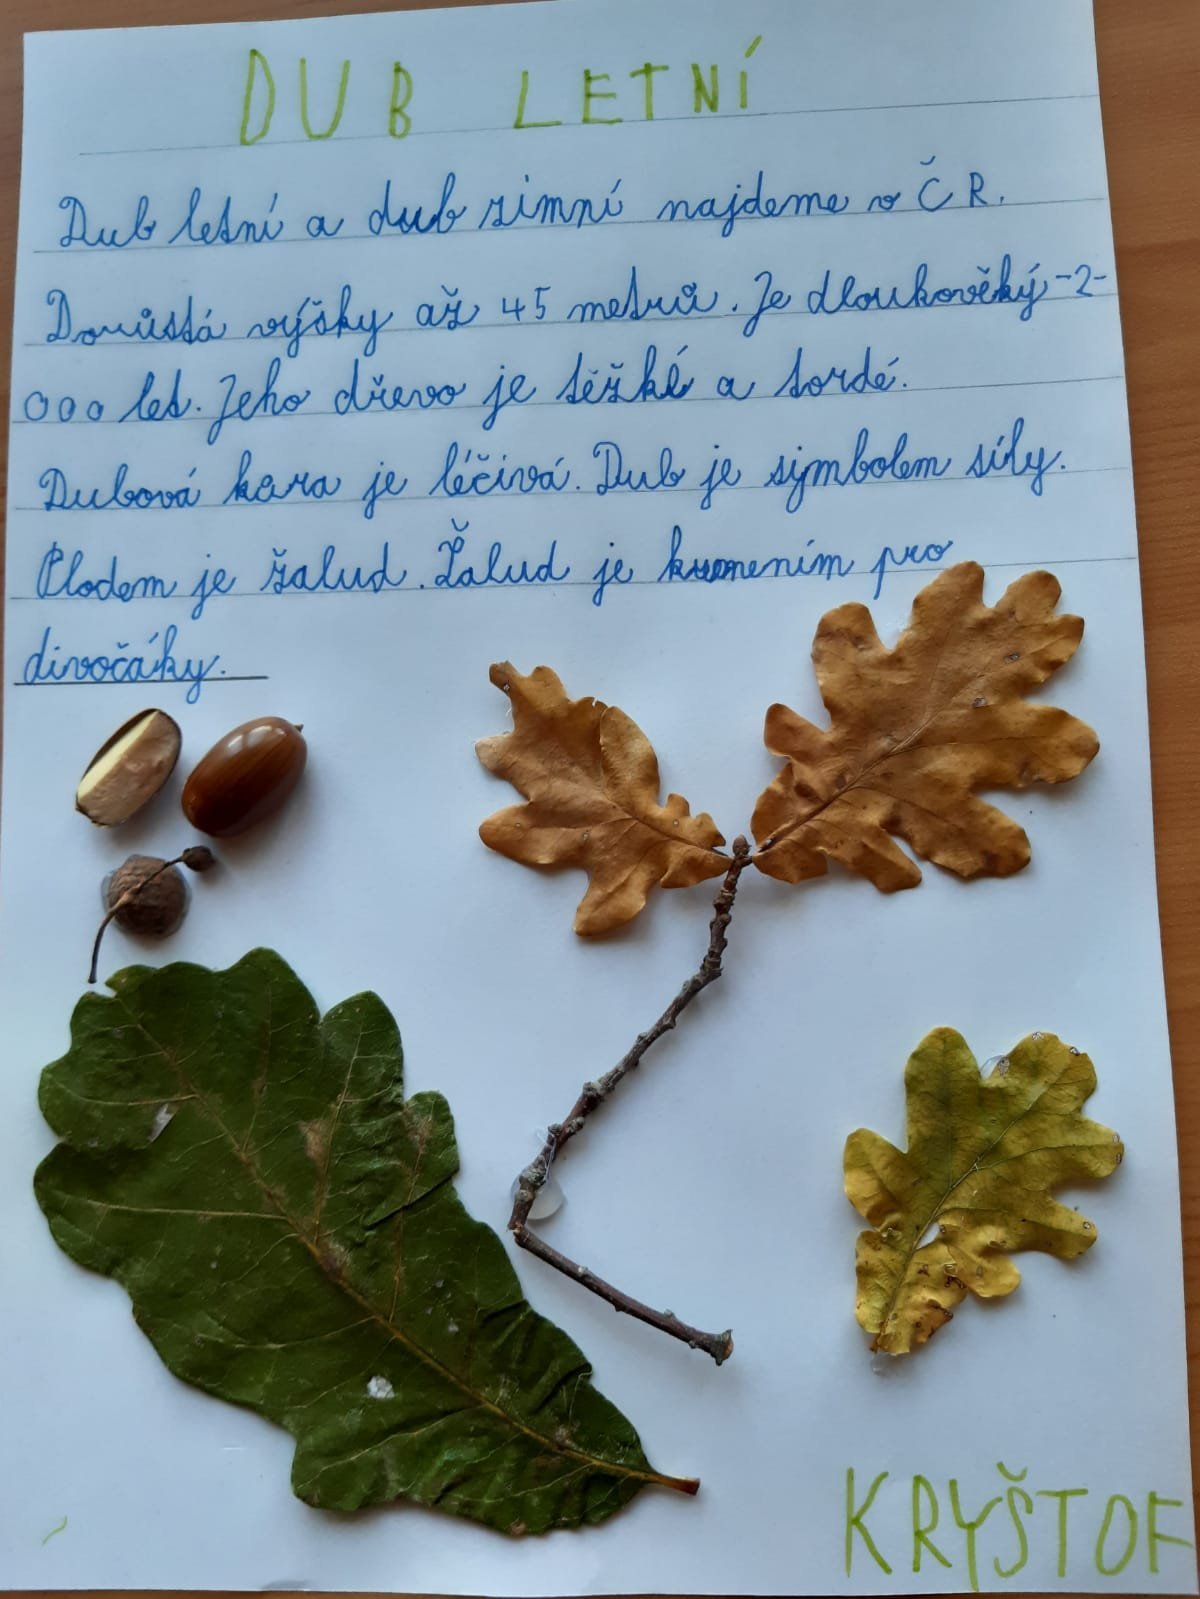 DUB LETNÍ
Dub letní a dub zimní najdeme v ČR.
Dorůstá výšky až 45 metrů. Je dloukověký -2-
000 let. Jeho dřevo je těžké a tvrdé.
Dubová kůra je léčivá. Dub je symbolem síly.
Plodem je žalud. Žalud je krmením pro
divočáky.
KRYŠTOF